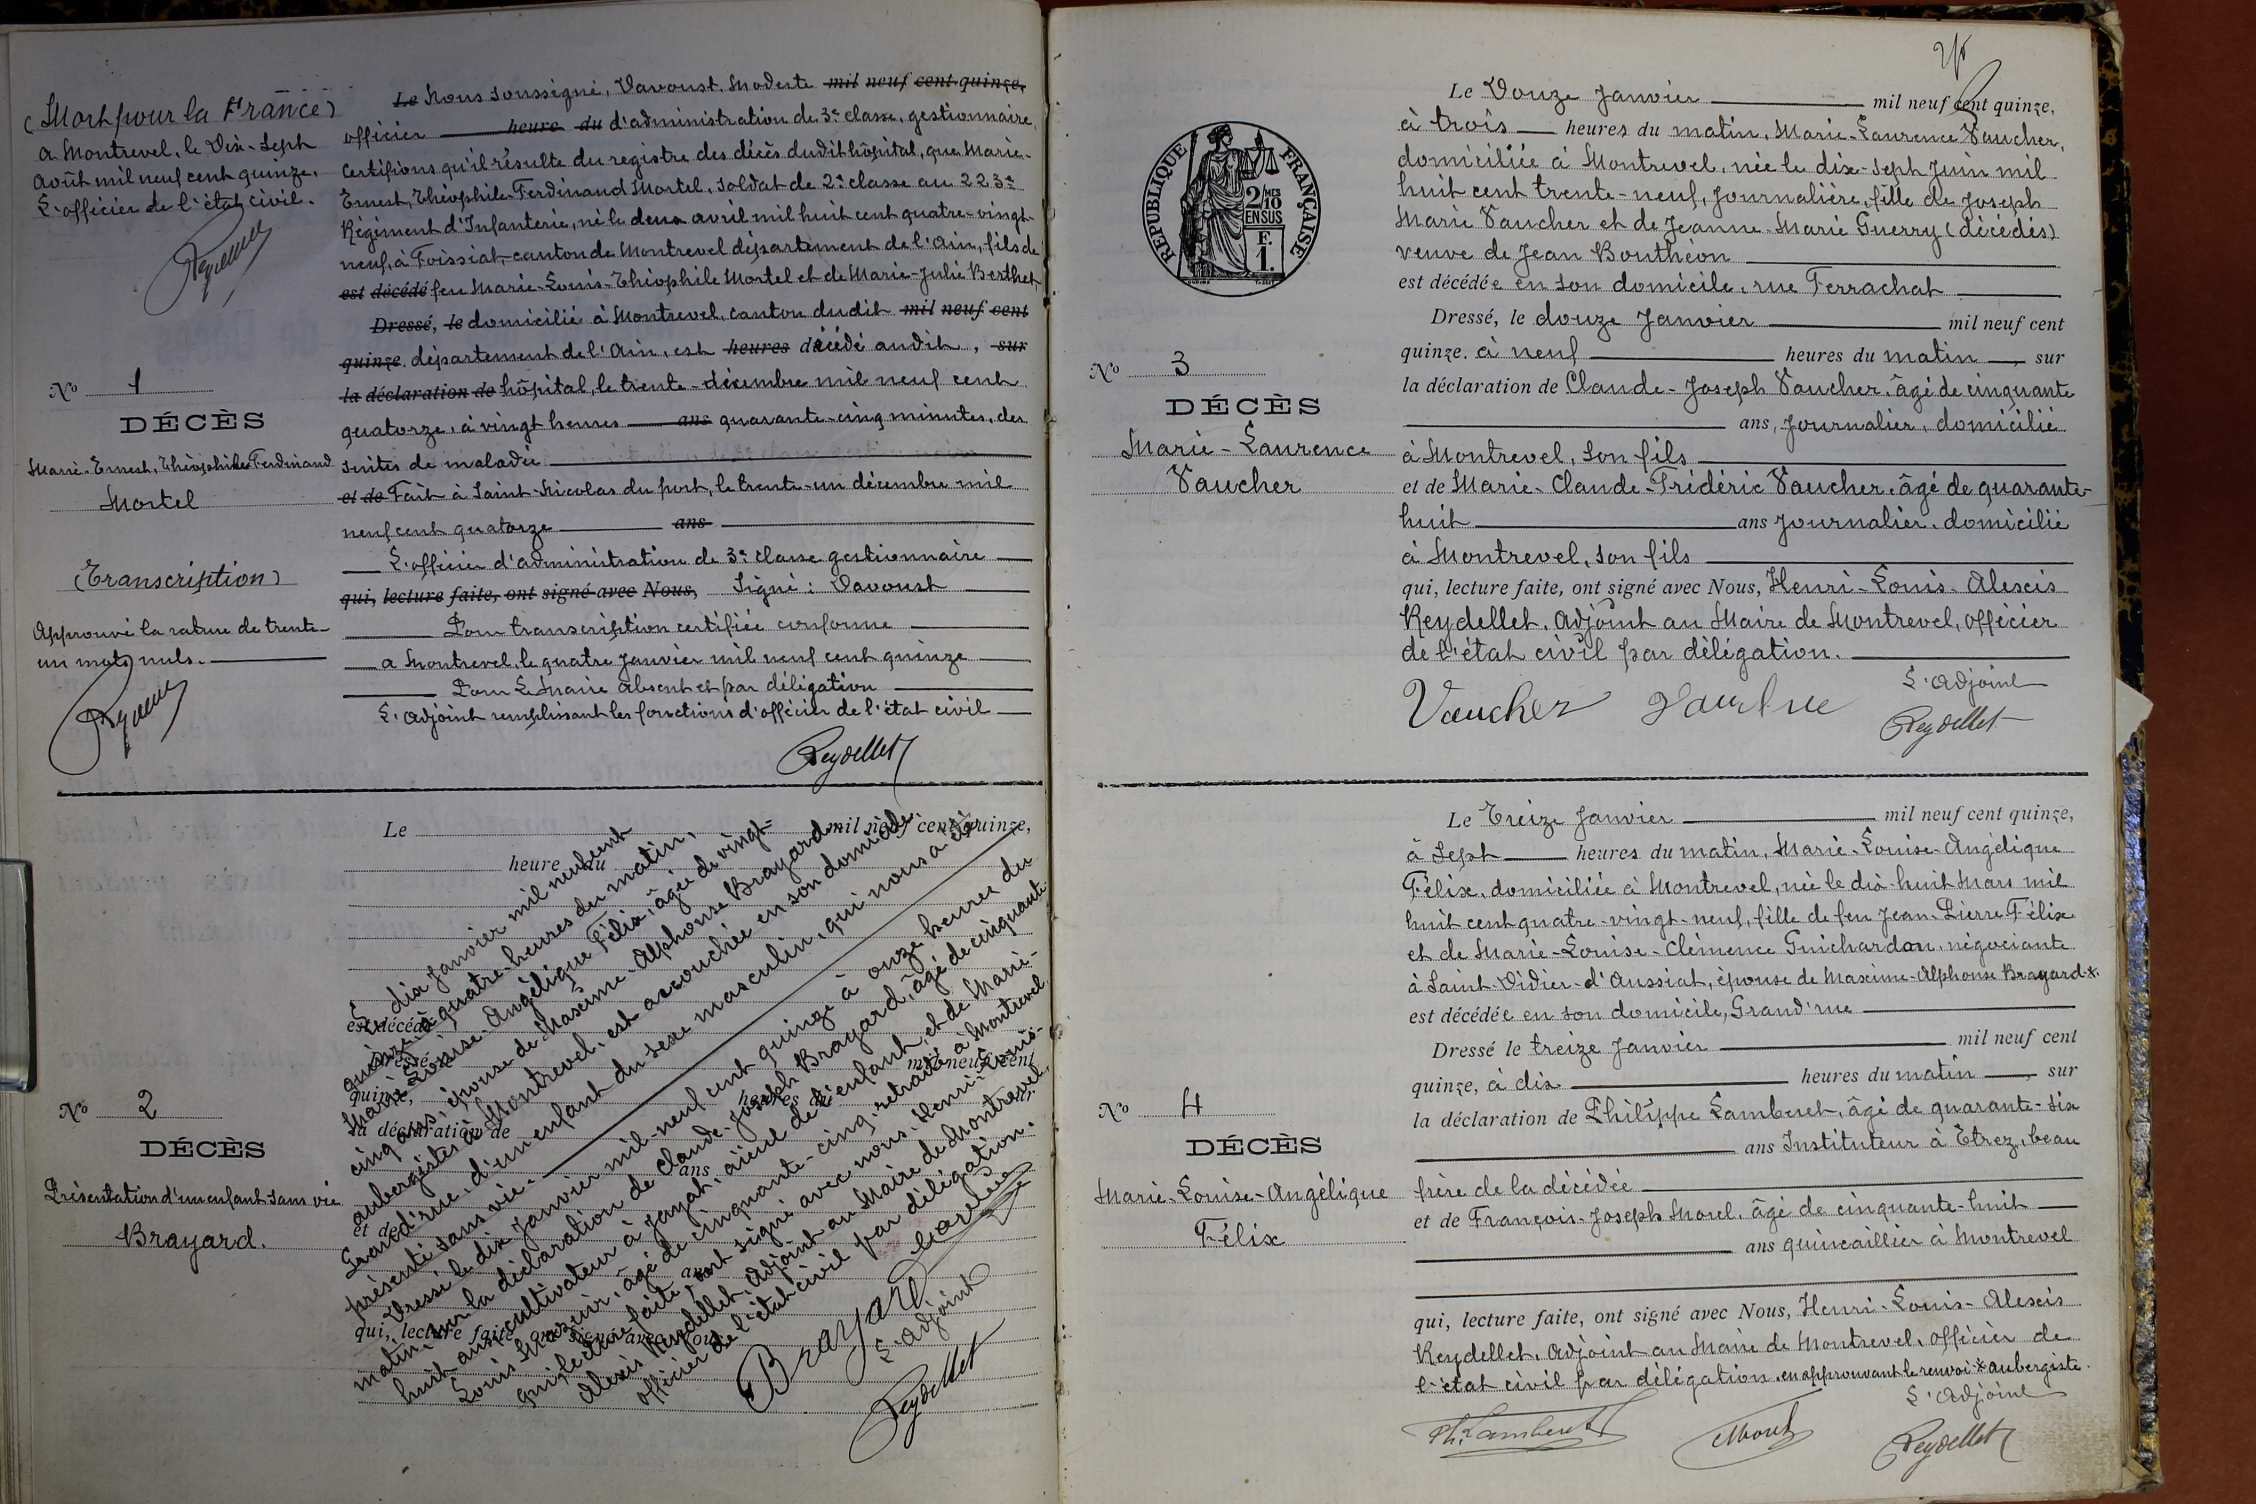 (Mort pour la France)
a Montrevel, le Dix-Sept
août mil neuf cent quinze.
L'officier de l'état civil.
Reydellet
N° 1
DÉCÈS
Marie-Ernest, Théophile-Ferdinand
Mortel
(Transcription)
Approuvé la rature de trente-
un mots nuls.
Reydellet
Le Nous soussigné, Davoust, Modeste mil neuf cent quinze,
officier heure du d'administration de 3e classe, gestionnaire,
certifions qu'il résulte du registre des décès dudit hôpital, que Marie-
Ernest, Théophile-Ferdinand Mortel, soldat de 2e classe au 223e
Régiment d'Infanterie, né le deux avril mil huit cent quatre-vingt-
neuf, à Foissiat, canton de Montrevel département de l'Ain, fils de
est décédé feu Marie-Louis-Théophile Mortel et de Marie-Julie Berthet
Dressé, le domicilié à Montrevel, canton dudit mil neuf cent
quinze. département de l'Ain, est heures décédé audit, sur
la déclaration de hôpital, le trente-décembre mil neuf cent
quatorze, à vingt heures ans quarante-cinq minutes, des
suites de maladie
et de Fait à Saint-Nicolas du port, le trente-un décembre mil
neuf cent quatorze ans
L'officier d'administration de 3e classe gestionnaire
qui, lecture faite, ont signé avec Nous, Signé: Davoust
Pour transcription certifiée conforme
a Montrevel, le quatre Janvier mil neuf cent quinze
Pour Le Maire absent et par délégation
L'adjoint remplissant les fonctions d'officier de l'état civil
Reydellet
N° 2
DÉCÈS
Présentation d'un enfant sans vie
Brayard.
Le mil neuf cent quinze,
heure du
est décédé
Dressé, mil neuf cent
quinze, heures du sur
la déclaration de
ans
et de
ans
qui, lecture faite, ont signé avec Nous,
Le dix Janvier mil neuf cent
quinze, à quatre heures du matin,
Marie-Louise-Angélique Félix, âgée de vingt-
cinq ans, épouse de Maxime-Alphonse Brayard
aubergistes à Montrevel, est accouchée en son domicile
Grand'rue, d'un enfant du sexe masculin, qui nous a été
présenté sans vie.
Dressé le dix Janvier mil-neuf cent quinze à onze heures du
matin, sur la déclaration de Claude-Joseph Brayard, âgé de cinquante
huit ans, cultivateur à Jayat, aïeul de l'enfant, et de Marie-
Louis Mazuir, âgé de cinquante-cinq, retraité à Montrevel,
qui lecture faite, ont signé avec nous, Henri-Louis-
Alexis Reydellet, Adjoint au Maire de Montrevel,
officier de l'état civil par délégation.
Brayard
L'adjoint
Reydellet
N° 3
DÉCÈS
Marie-Laurence
Vaucher
RÉPUBLIQUE FRANÇAISE
2/10MES
EN SUS
F.
1.
Le Douze Janvier mil neuf cent quinze,
à trois heures du matin, Marie-Laurence Vaucher,
domiciliée à Montrevel, née le dix-sept Juin mil
huit cent trente-neuf, Journalière, fille de Joseph
Marie Vaucher et de Jeanne-Marie Guerry (décédés)
veuve de Jean Bonthéon
est décédée en son domicile, rue Ferrachat
Dressé, le douze Janvier mil neuf cent
quinze. à neuf heures du matin, sur
la déclaration de Claude-Joseph Vaucher, âgé de cinquante
ans, Journalier, domicilié
à Montrevel, son fils
et de Marie-Claude-Frédéric Vaucher, âgé de quarante-
huit ans Journalier, domicilié
à Montrevel, son fils
qui, lecture faite, ont signé avec Nous, Henri-Louis-Alexis
Reydellet, Adjoint au Maire de Montrevel, officier
de l'état civil par délégation.
L'adjoint
Vaucher Vaucher Reydellet
N° 4
DÉCÈS
Marie-Louise-Angélique
Félix
Le Treize Janvier mil neuf cent quinze,
à Sept heures du matin, Marie-Louise-Angélique
Félix, domiciliée à Montrevel, née le dix-huit Mars mil
huit cent quatre-vingt-neuf, fille de feu Jean-Pierre Félix
et de Marie-Louise-Clémence Guichardon, négociante
à Saint-Didier-d'Aussiat, épouse de Maxime-Alphonse Brayard *.
est décédée en son domicile, Grand'rue
Dressé le treize Janvier mil neuf cent
quinze, à dix heures du matin, sur
la déclaration de Philippe Lamberet, âgé de quarante-six
ans Instituteur à Etrez, beau
frère de la décédée
et de François-Joseph Morel, âgé de cinquante-huit
ans quincaillier à Montrevel
qui, lecture faite, ont signé avec Nous, Henri-Louis-Alexis
Reydellet, Adjoint au Maire de Montrevel, officier de
l'état civil par délégation. en approuvant le renvoi * aubergiste.
L'adjoint
Ph. Lamberet Morel Reydellet